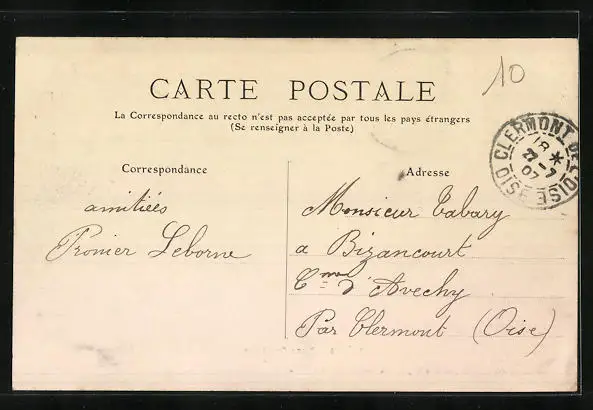 10
CARTE POSTALE
La Correspondance au recto n'est pas acceptée par tous les pays étrangers
(Se renseigner à la Poste)
CLERMONT DE L'OISE
18 *
27-7
07
OISE
Correspondance
Adresse
amitiés
Pronier Leborne
Monsieur Tabary
a Bizancourt
Cne d'Avechy
Par Clermont (Oise)